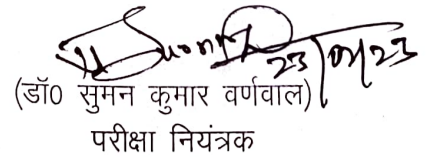 23/02/23
(डॉ0 सुमन कुमार वर्णवाल)
परीक्षा नियंत्रक